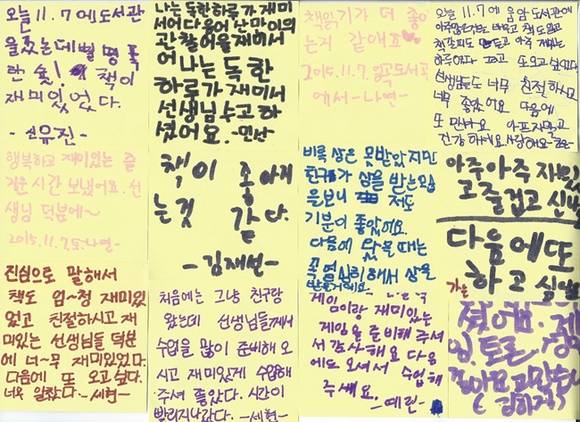 오늘 11.7 에 도서관
을 왔는데 삘 명 푹
한 숲! 책이
재미있었다.
-신유진-
나는 독한하루가 재미
서어 다음에 난 마이의
관찰어을 재미서
어 나는 독한
하루가 재미서
선생님 수고 하
셨어요. -민난
책읽기가 더 좋
는지 같애요
2015.11.7. 도서관
에서 -나연-
오늘 11.7 에 도서관에
책도 읽고
아주 재밌는
하루이다 그리고 또 오고 싶었다
선생님들도 너무 친절하시고
너무 좋았어요 다음에
또 만나요 아프지말고
건강하세요 사랑해요
행복하고 재미있는 즐
거운 시간 보냈어요. 선
생님 덕분에~
2015.11.7.토-나연-
책이 좋아지
는것 같다.
-김재선-
비록 상은 못받았지만
친구가 상을 받는 모습
을 보니 저도
기분이 좋았어요.
다음에 왔을 때는
꼭 열심히해서 상을
받을거예요.
아주아주 재밌
고 즐겁고 신난
다음에 또
하고 싶
진심으로 말해서
책도 엄~청 재미있
었고 친절하시고 재
미있는 선생님들 덕분
에 너~무 재미있었다.
다음에 또 오고 싶다.
너무 알찼다. -세현-
처음에는 그냥 친구랑
왔는데 선생님들께서
수업을 많이 준비해 오
시고 재미있게 수업해
주셔 좋았다. 시간이
빨리지나갔다. -세현-
게임이랑 재미있는
게임을 준비해 주셔
서 감사해요 다음
에도 오셔서 수업해
주세요. -예린-
셨어요. 게
임, 토론,